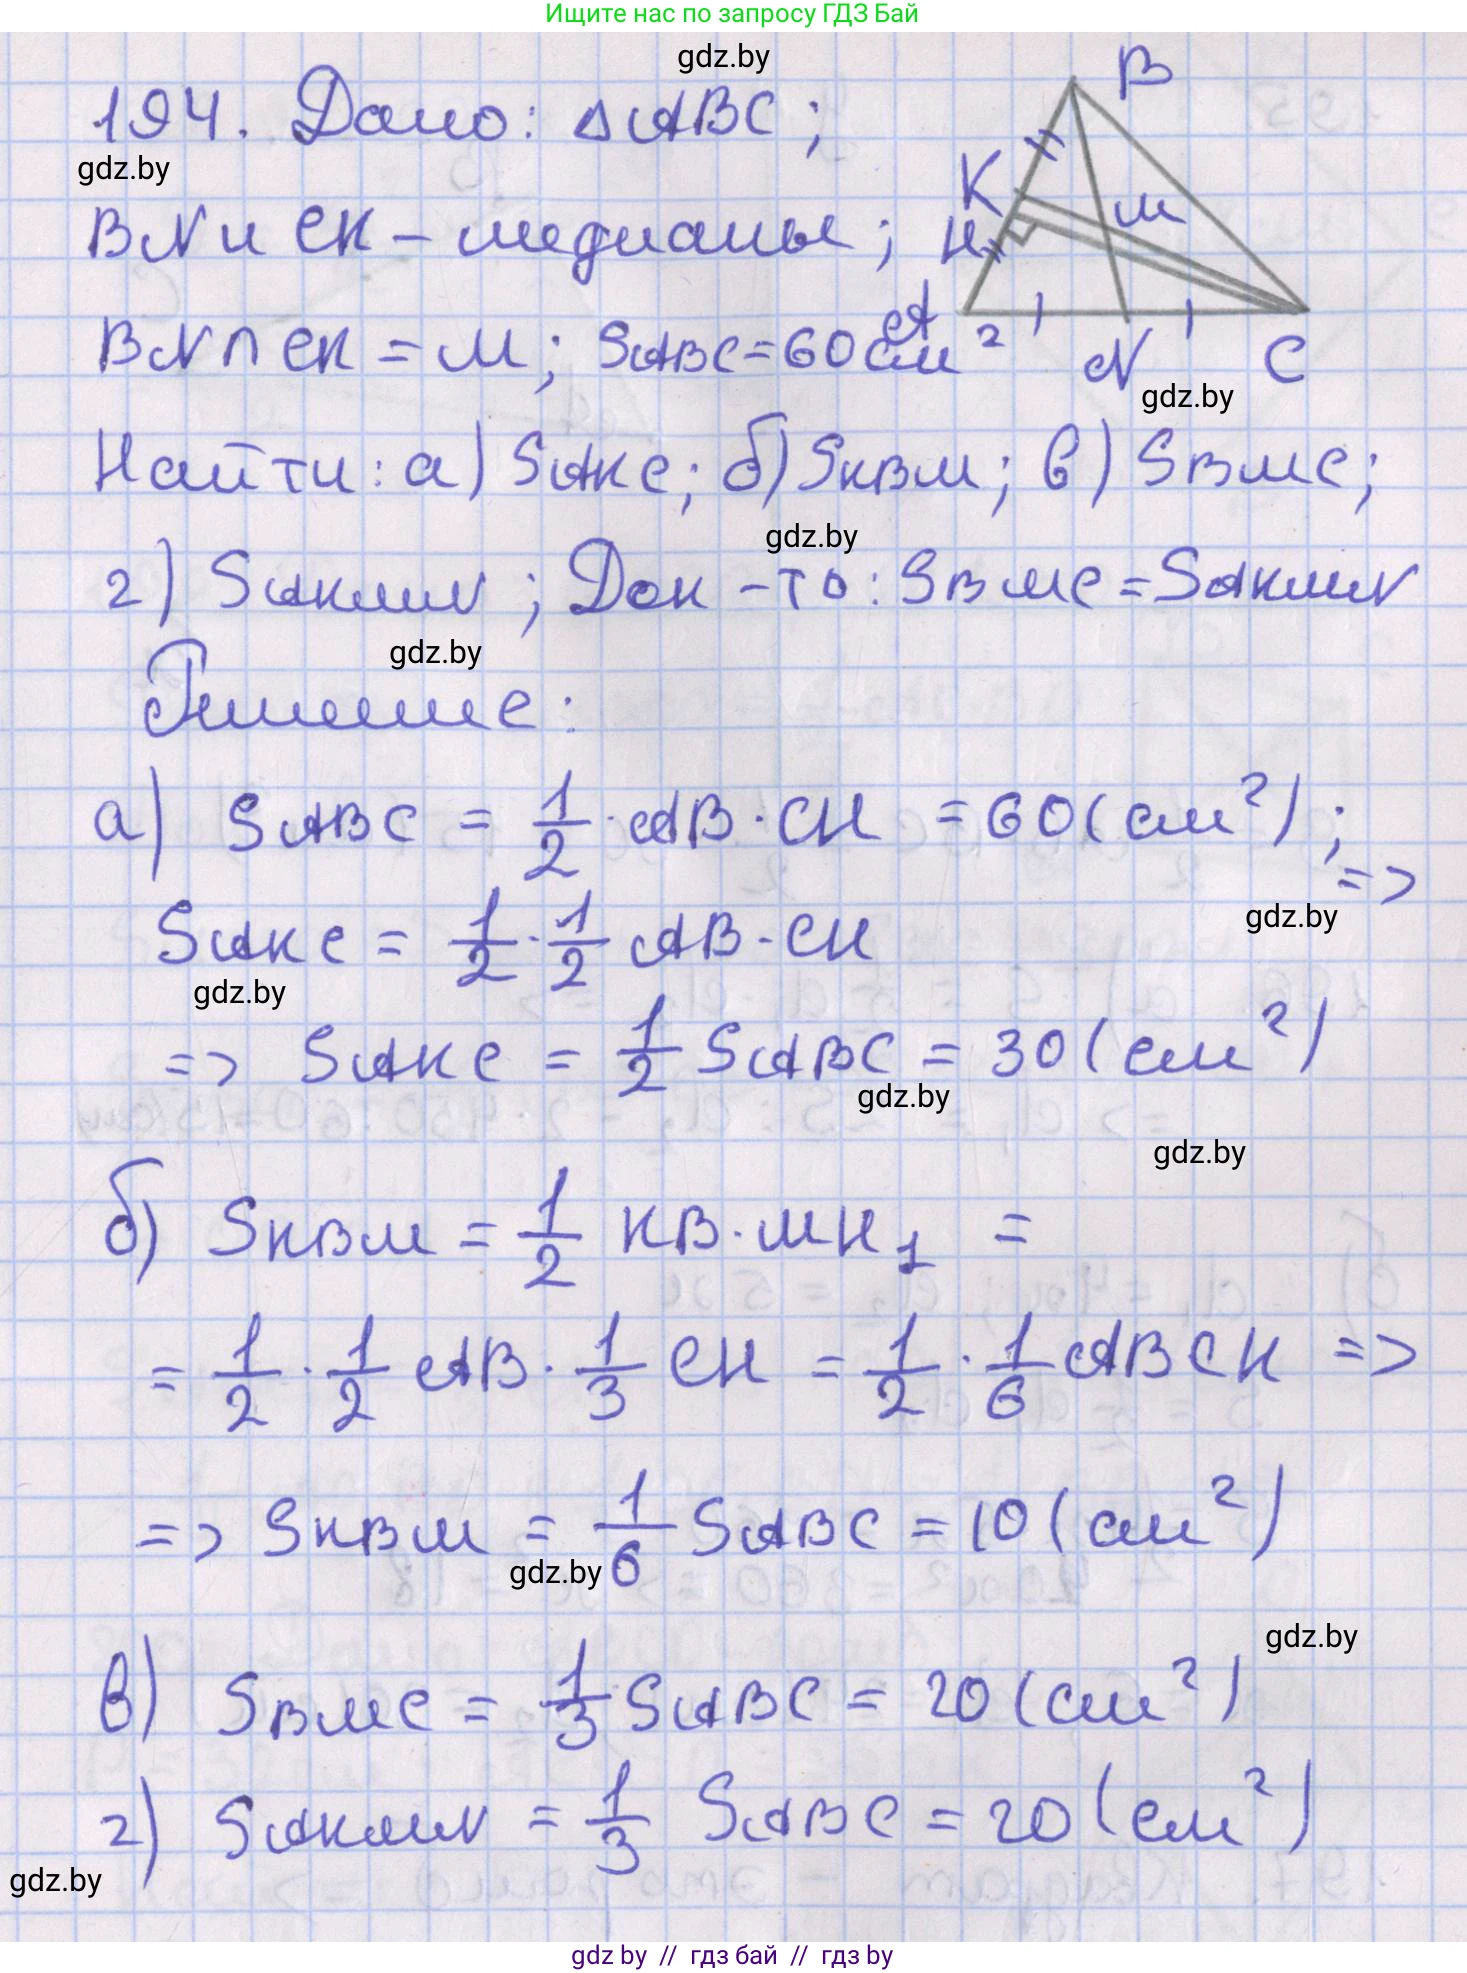 Ищите нас по запросу ГДЗ Бай
gdz.by
194. Дано: △ABC;
gdz.by
BN и CK – медианы;
BN ∩ CK = M; SABC = 60 см²
B
K
M
H
A
N
C
gdz.by
Найти: а) SAKC; б) SKBM; в) SBMC;
gdz.by
г) SAKMN; Док-ть: SBMC = SAKMN
gdz.by
Решение:
а) SABC = 1/2 · AB · CH = 60 (см²); =>
gdz.by
SAKC = 1/2 · 1/2 AB · CH
gdz.by
=> SAKC = 1/2 SABC = 30 (см²)
gdz.by
gdz.by
б) SKBM = 1/2 KB · MH₁ =
= 1/2 · 1/2 AB · 1/3 CH = 1/2 · 1/6 AB CH =>
=> SKBM = 1/6 SABC = 10 (см²)
gdz.by
gdz.by
в) SBMC = 1/3 SABC = 20 (см²)
г) SAKMN = 1/3 SABC = 20 (см²)
gdz.by
gdz by // гдз бай // гдз by